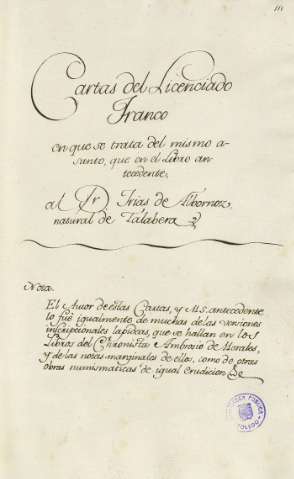 Cartas del Licenciado
Franco
en que se trata del mismo a-
sunto, que en el Libro an-
tecedente;
al Dr Frias de Albornoz,
natural de Talabera
Nota.
El Autor de estas Cartas, y M.S. antecedente
lo fue igualmente de muchas de las versiones
inscripcionales lapideas, que se hallan en los
Libros del Chronista Ambrosio de Morales,
y de las notas marginales de ellos, como de otras
obras numismaticas de igual erudicion &c
TOLEDO